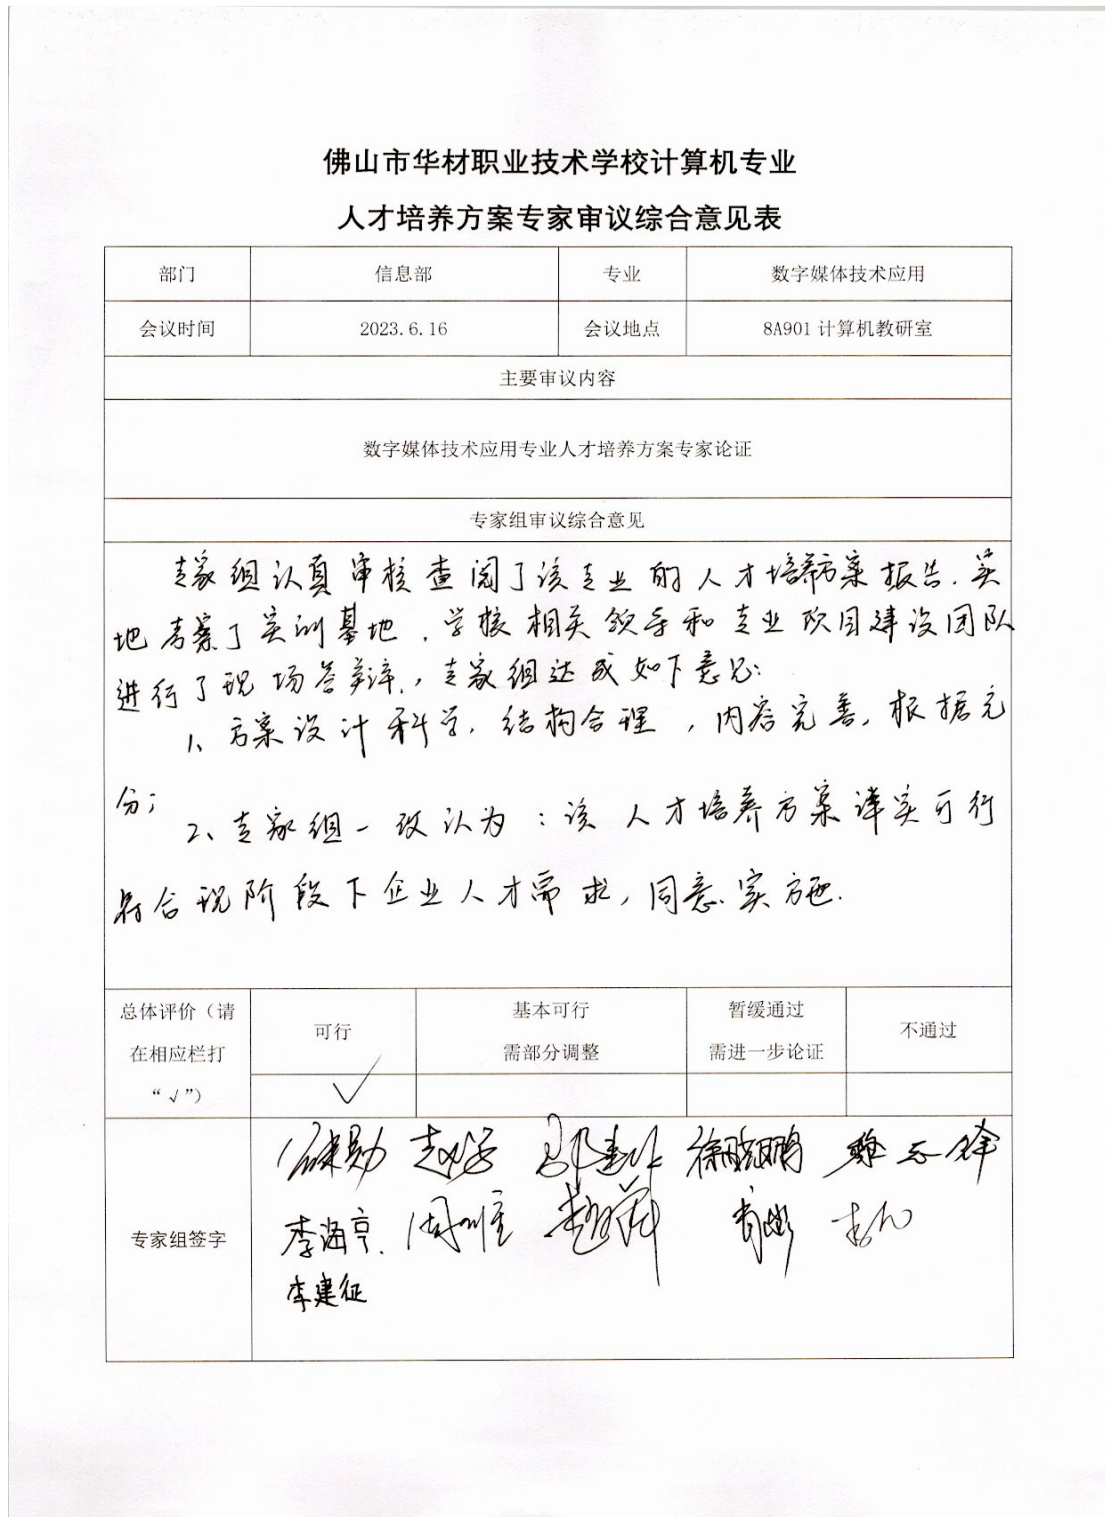 佛山市华材职业技术学校计算机专业
人才培养方案专家审议综合意见表
部门 信息部 专业 数字媒体技术应用
会议时间 2023.6.16 会议地点 8A901 计算机教研室
主要审议内容
数字媒体技术应用专业人才培养方案专家论证
专家组审议综合意见
专家组认真审核查阅了该专业的人才培养方案报告.实
地考察了实训基地,学校相关领导和专业项目建设团队
进行了现场答辩,专家组达成如下意见:
1、方案设计科学,结构合理,内容完善,根据充
分;
2、专家组一致认为:该人才培养方案详实可行
符合现阶段下企业人才需求,同意实施.
总体评价(请
在相应栏打
“√”)
可行
基本可行
需部分调整
暂缓通过
需进一步论证
不通过
√
专家组签字
徐晓鹏
李海亨 周唯 肖彬
李建征